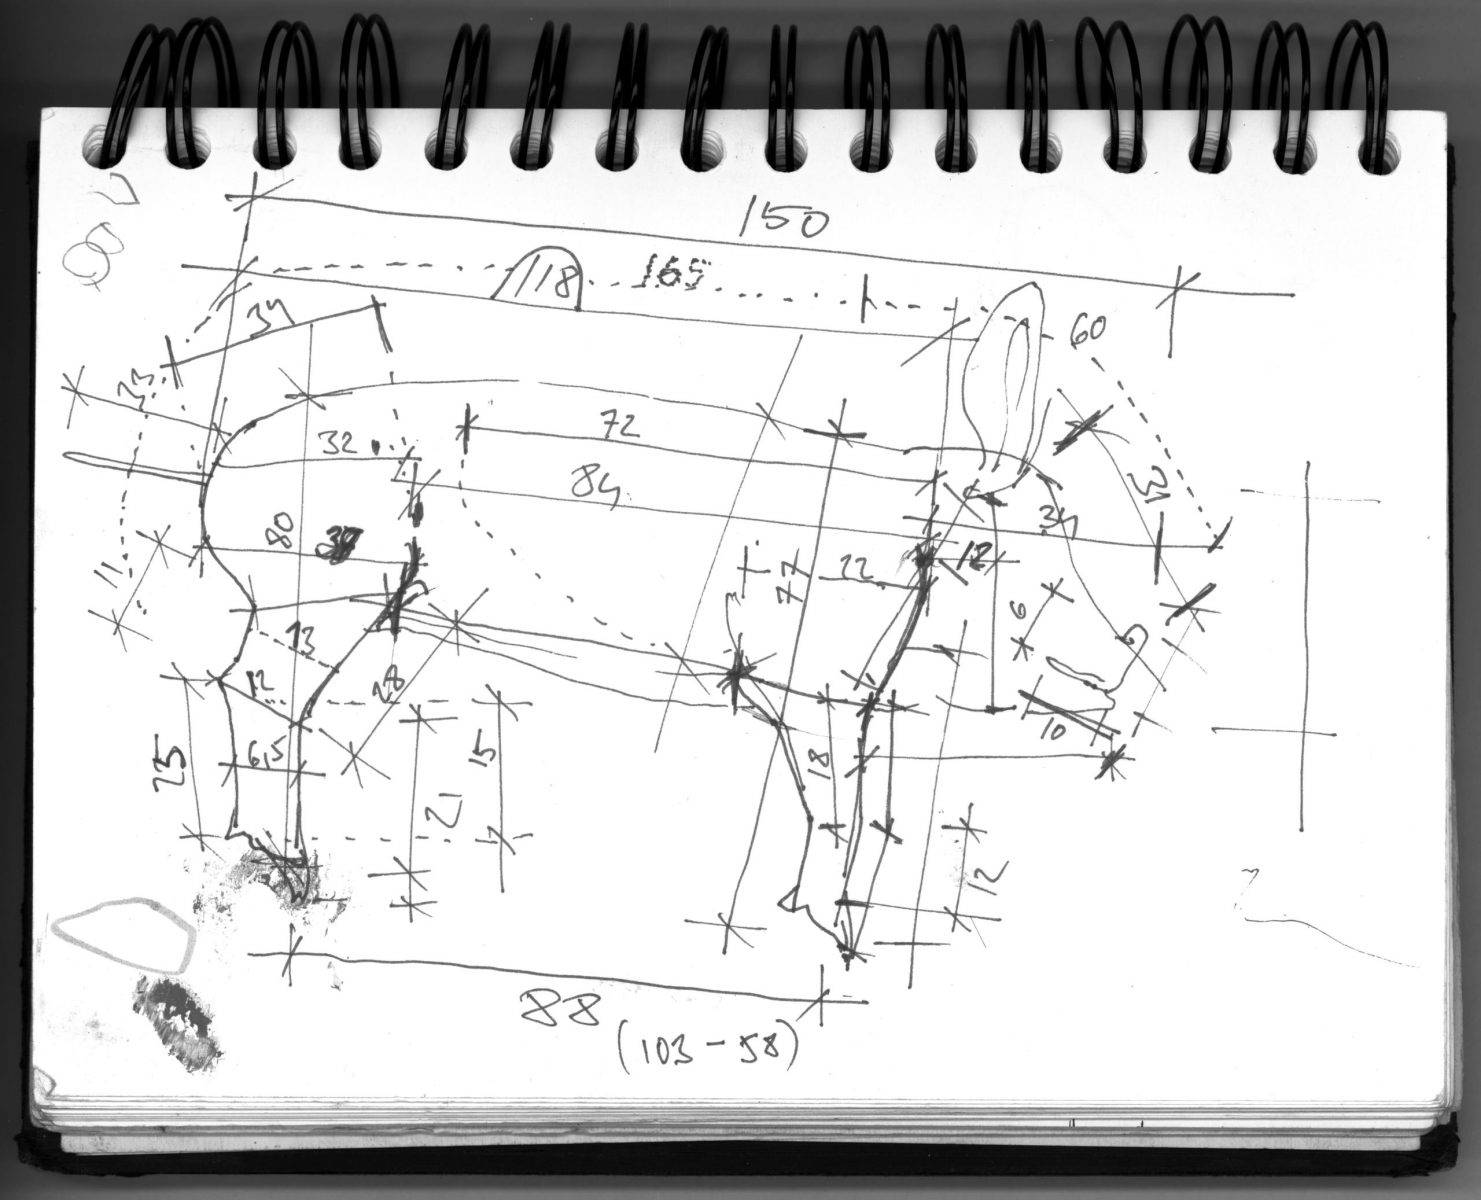 150
118 165
34
60
33
32
72
84
31
34
80
77
22
12
11
6
13
12
28
10
25
6,5
15
18
21
12
88
(103-58)